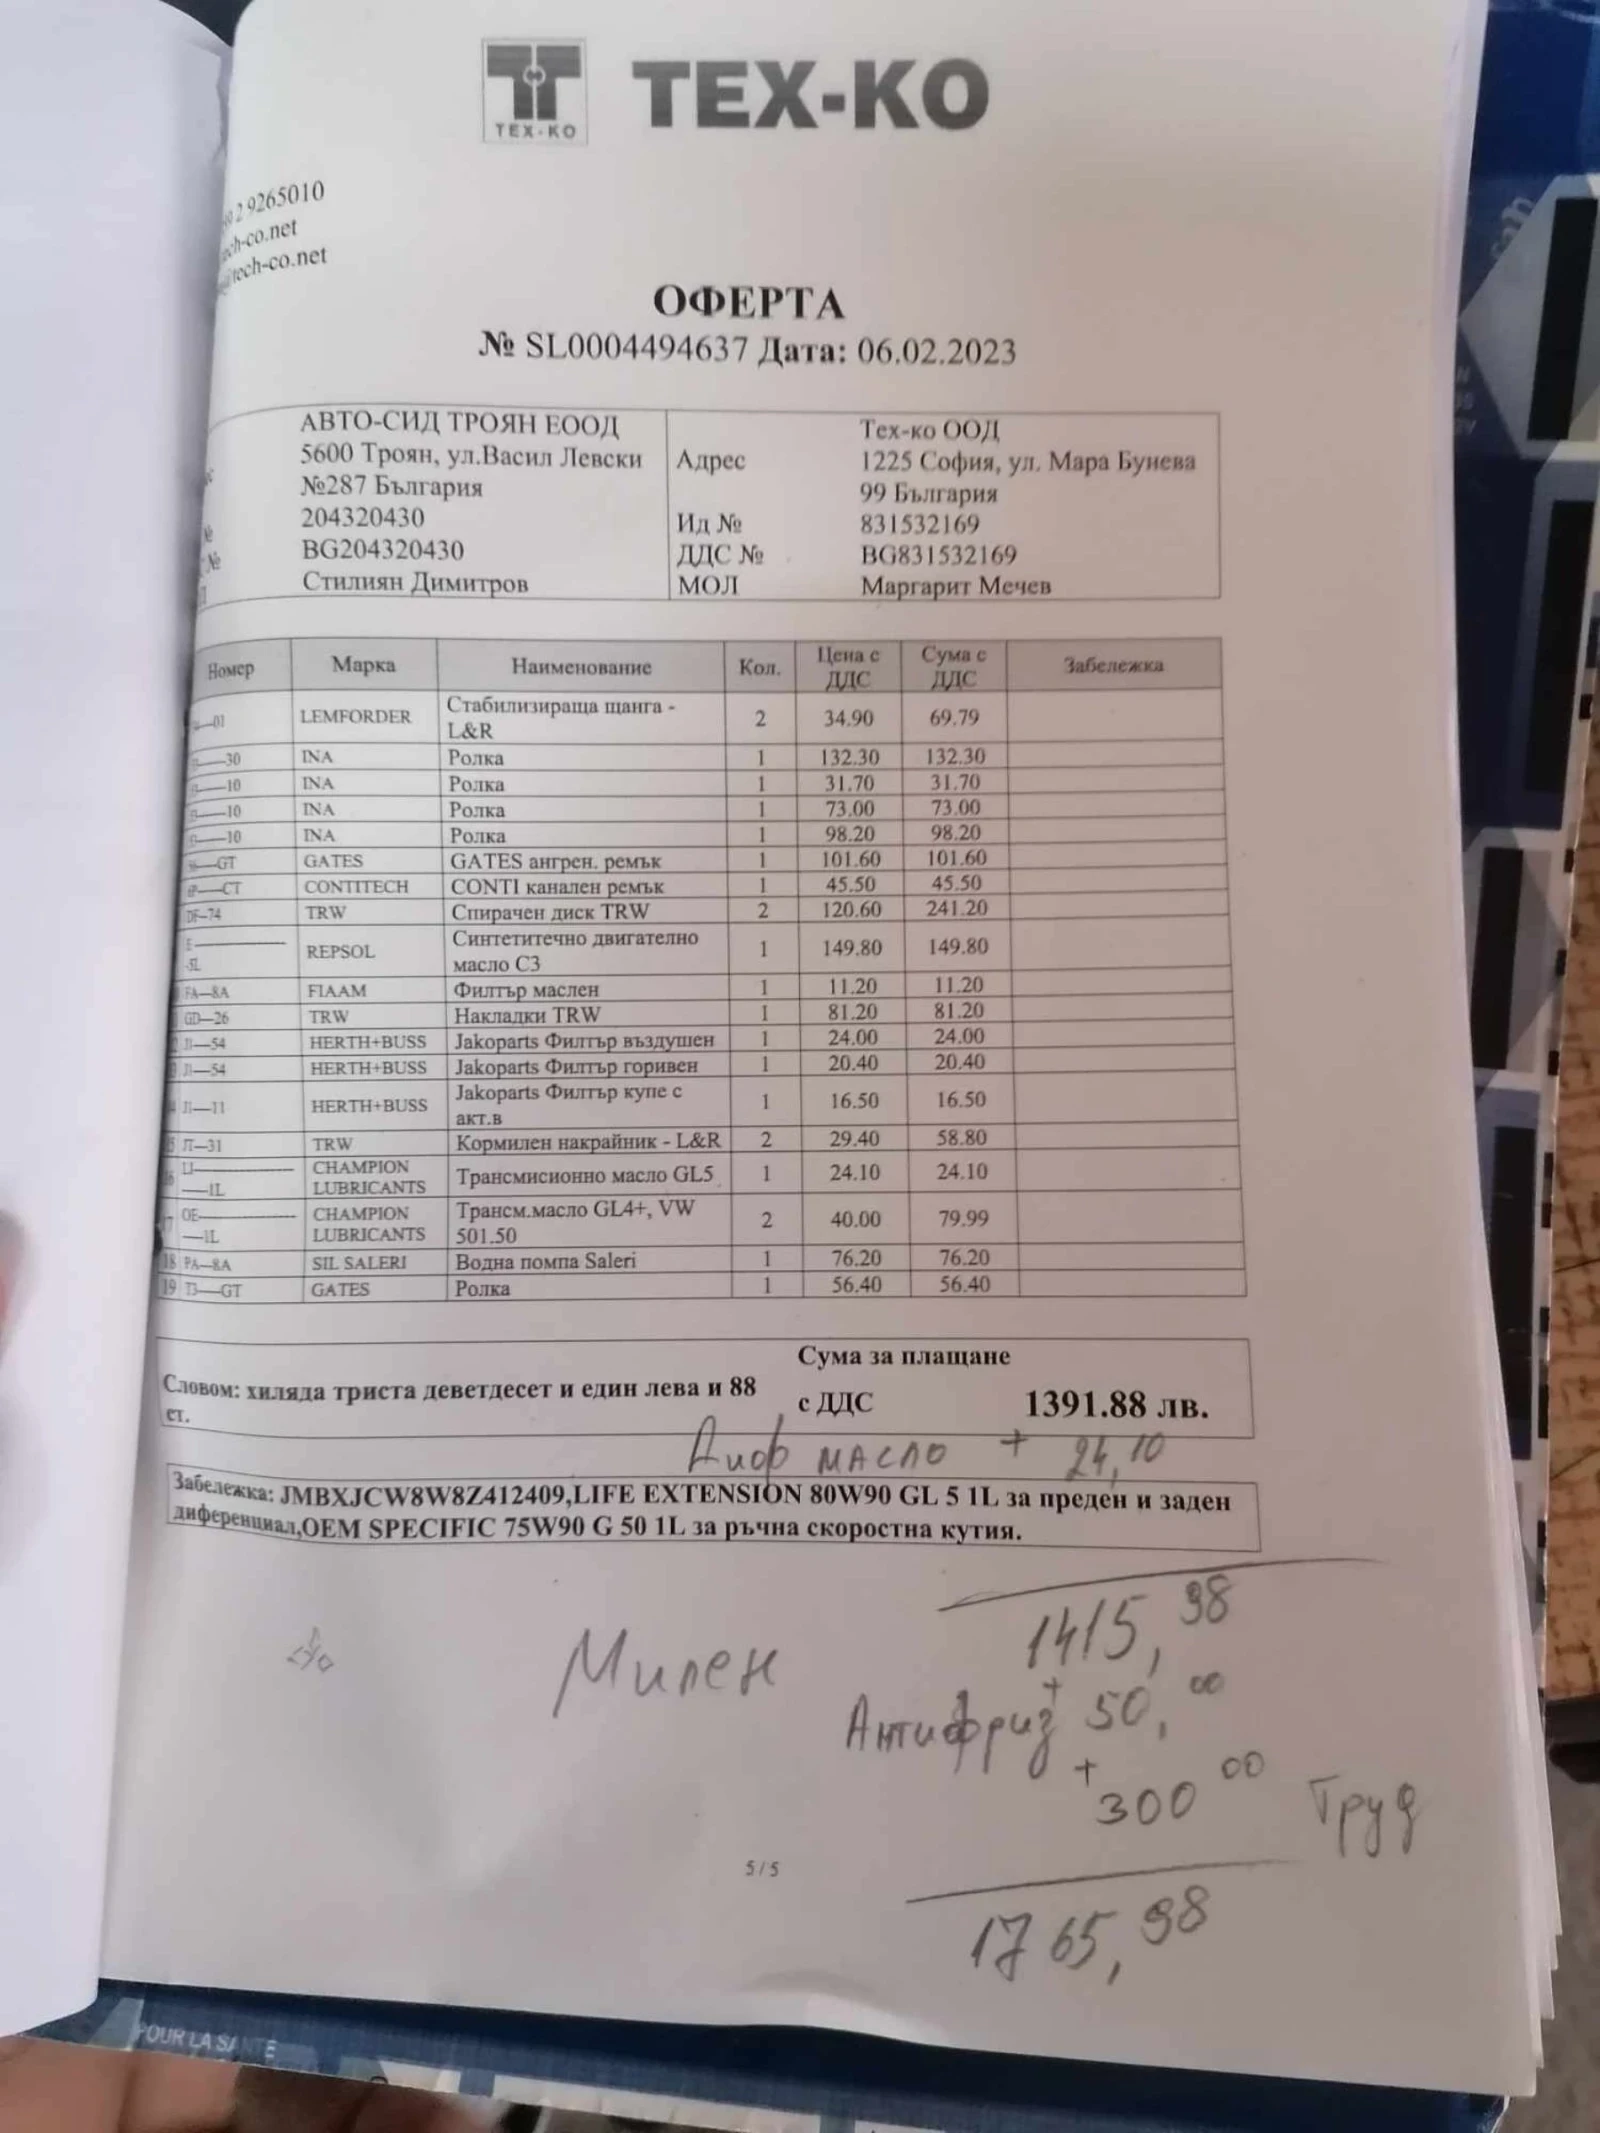 TEX-KO
ТЕХ-КО
2 9265010
ch-co.net
tech-co.net
ОФЕРТА
№ SL0004494637 Дата: 06.02.2023
АВТО-СИД ТРОЯН ЕООД Тех-ко ООД
5600 Троян, ул.Васил Левски Адрес 1225 София, ул. Мара Бунева
№287 България 99 България
204320430 Ид № 831532169
№ BG204320430 ДДС № BG831532169
Стилиян Димитров МОЛ Маргарит Мечев
Номер Марка Наименование Кол. Цена с ДДС Сума с ДДС Забележка
—01 LEMFORDER Стабилизираща щанга - L&R 2 34.90 69.79
—30 INA Ролка 1 132.30 132.30
—10 INA Ролка 1 31.70 31.70
—10 INA Ролка 1 73.00 73.00
—10 INA Ролка 1 98.20 98.20
—GT GATES GATES ангрен. ремък 1 101.60 101.60
—CT CONTITECH CONTI канален ремък 1 45.50 45.50
DF—74 TRW Спирачен диск TRW 2 120.60 241.20
E— -5L REPSOL Синтетитечно двигателно масло C3 1 149.80 149.80
FA—8A FIAAM Филтър маслен 1 11.20 11.20
GD—26 TRW Накладки TRW 1 81.20 81.20
J1—54 HERTH+BUSS Jakoparts Филтър въздушен 1 24.00 24.00
J1—54 HERTH+BUSS Jakoparts Филтър горивен 1 20.40 20.40
J1—11 HERTH+BUSS Jakoparts Филтър купе с акт.в 1 16.50 16.50
JT—31 TRW Кормилен накрайник - L&R 2 29.40 58.80
LI— —1L CHAMPION LUBRICANTS Трансмисионно масло GL5 1 24.10 24.10
OE— —1L CHAMPION LUBRICANTS Трансм.масло GL4+, VW 501.50 2 40.00 79.99
18 PA—8A SIL SALERI Водна помпа Saleri 1 76.20 76.20
19 T3—GT GATES Ролка 1 56.40 56.40
Сума за плащане
Словом: хиляда триста деветдесет и един лева и 88 с ДДС 1391.88 лв.
ст.
Диф масло + 24,10
Забележка: JMBXJCW8W8Z412409,LIFE EXTENSION 80W90 GL 5 1L за преден и заден
диференциал,OEM SPECIFIC 75W90 G 50 1L за ръчна скоростна кутия.
1415,98
Милен
Антифриз + 50,00
+ 300 00 Труд
5 / 5
1765,98
POUR LA SANTE